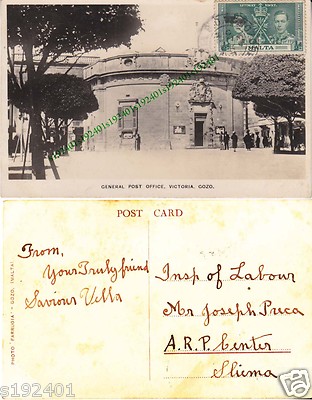 MALTA
s192401s192401s192401s192401s192401
GENERAL POST OFFICE, VICTORIA, GOZO.
POST CARD
From,
Your Truly friend
Saviour Vella
Insp of Labour
Mr Joseph Puca
A.R.P. Center
Sliema
PHOTO "FARRUGIA" - GOZO, (MALTA)
s192401